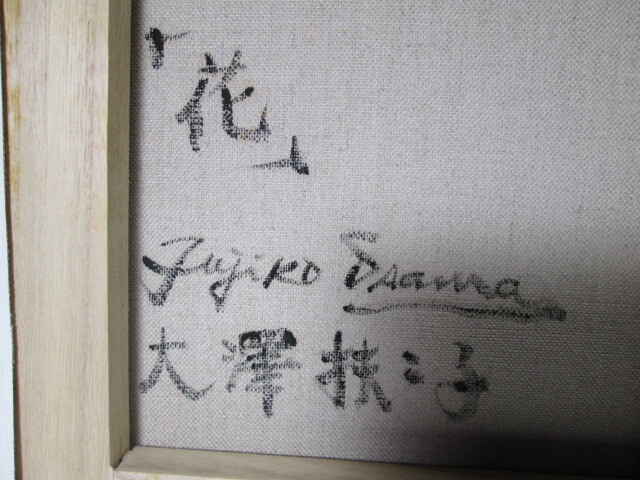 「花」
Fujiko Osawa
大澤扶二子